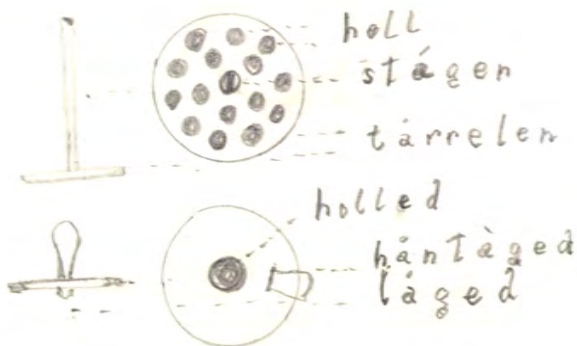 håll
stágen
tárrelen
hålled
håntàged
låged